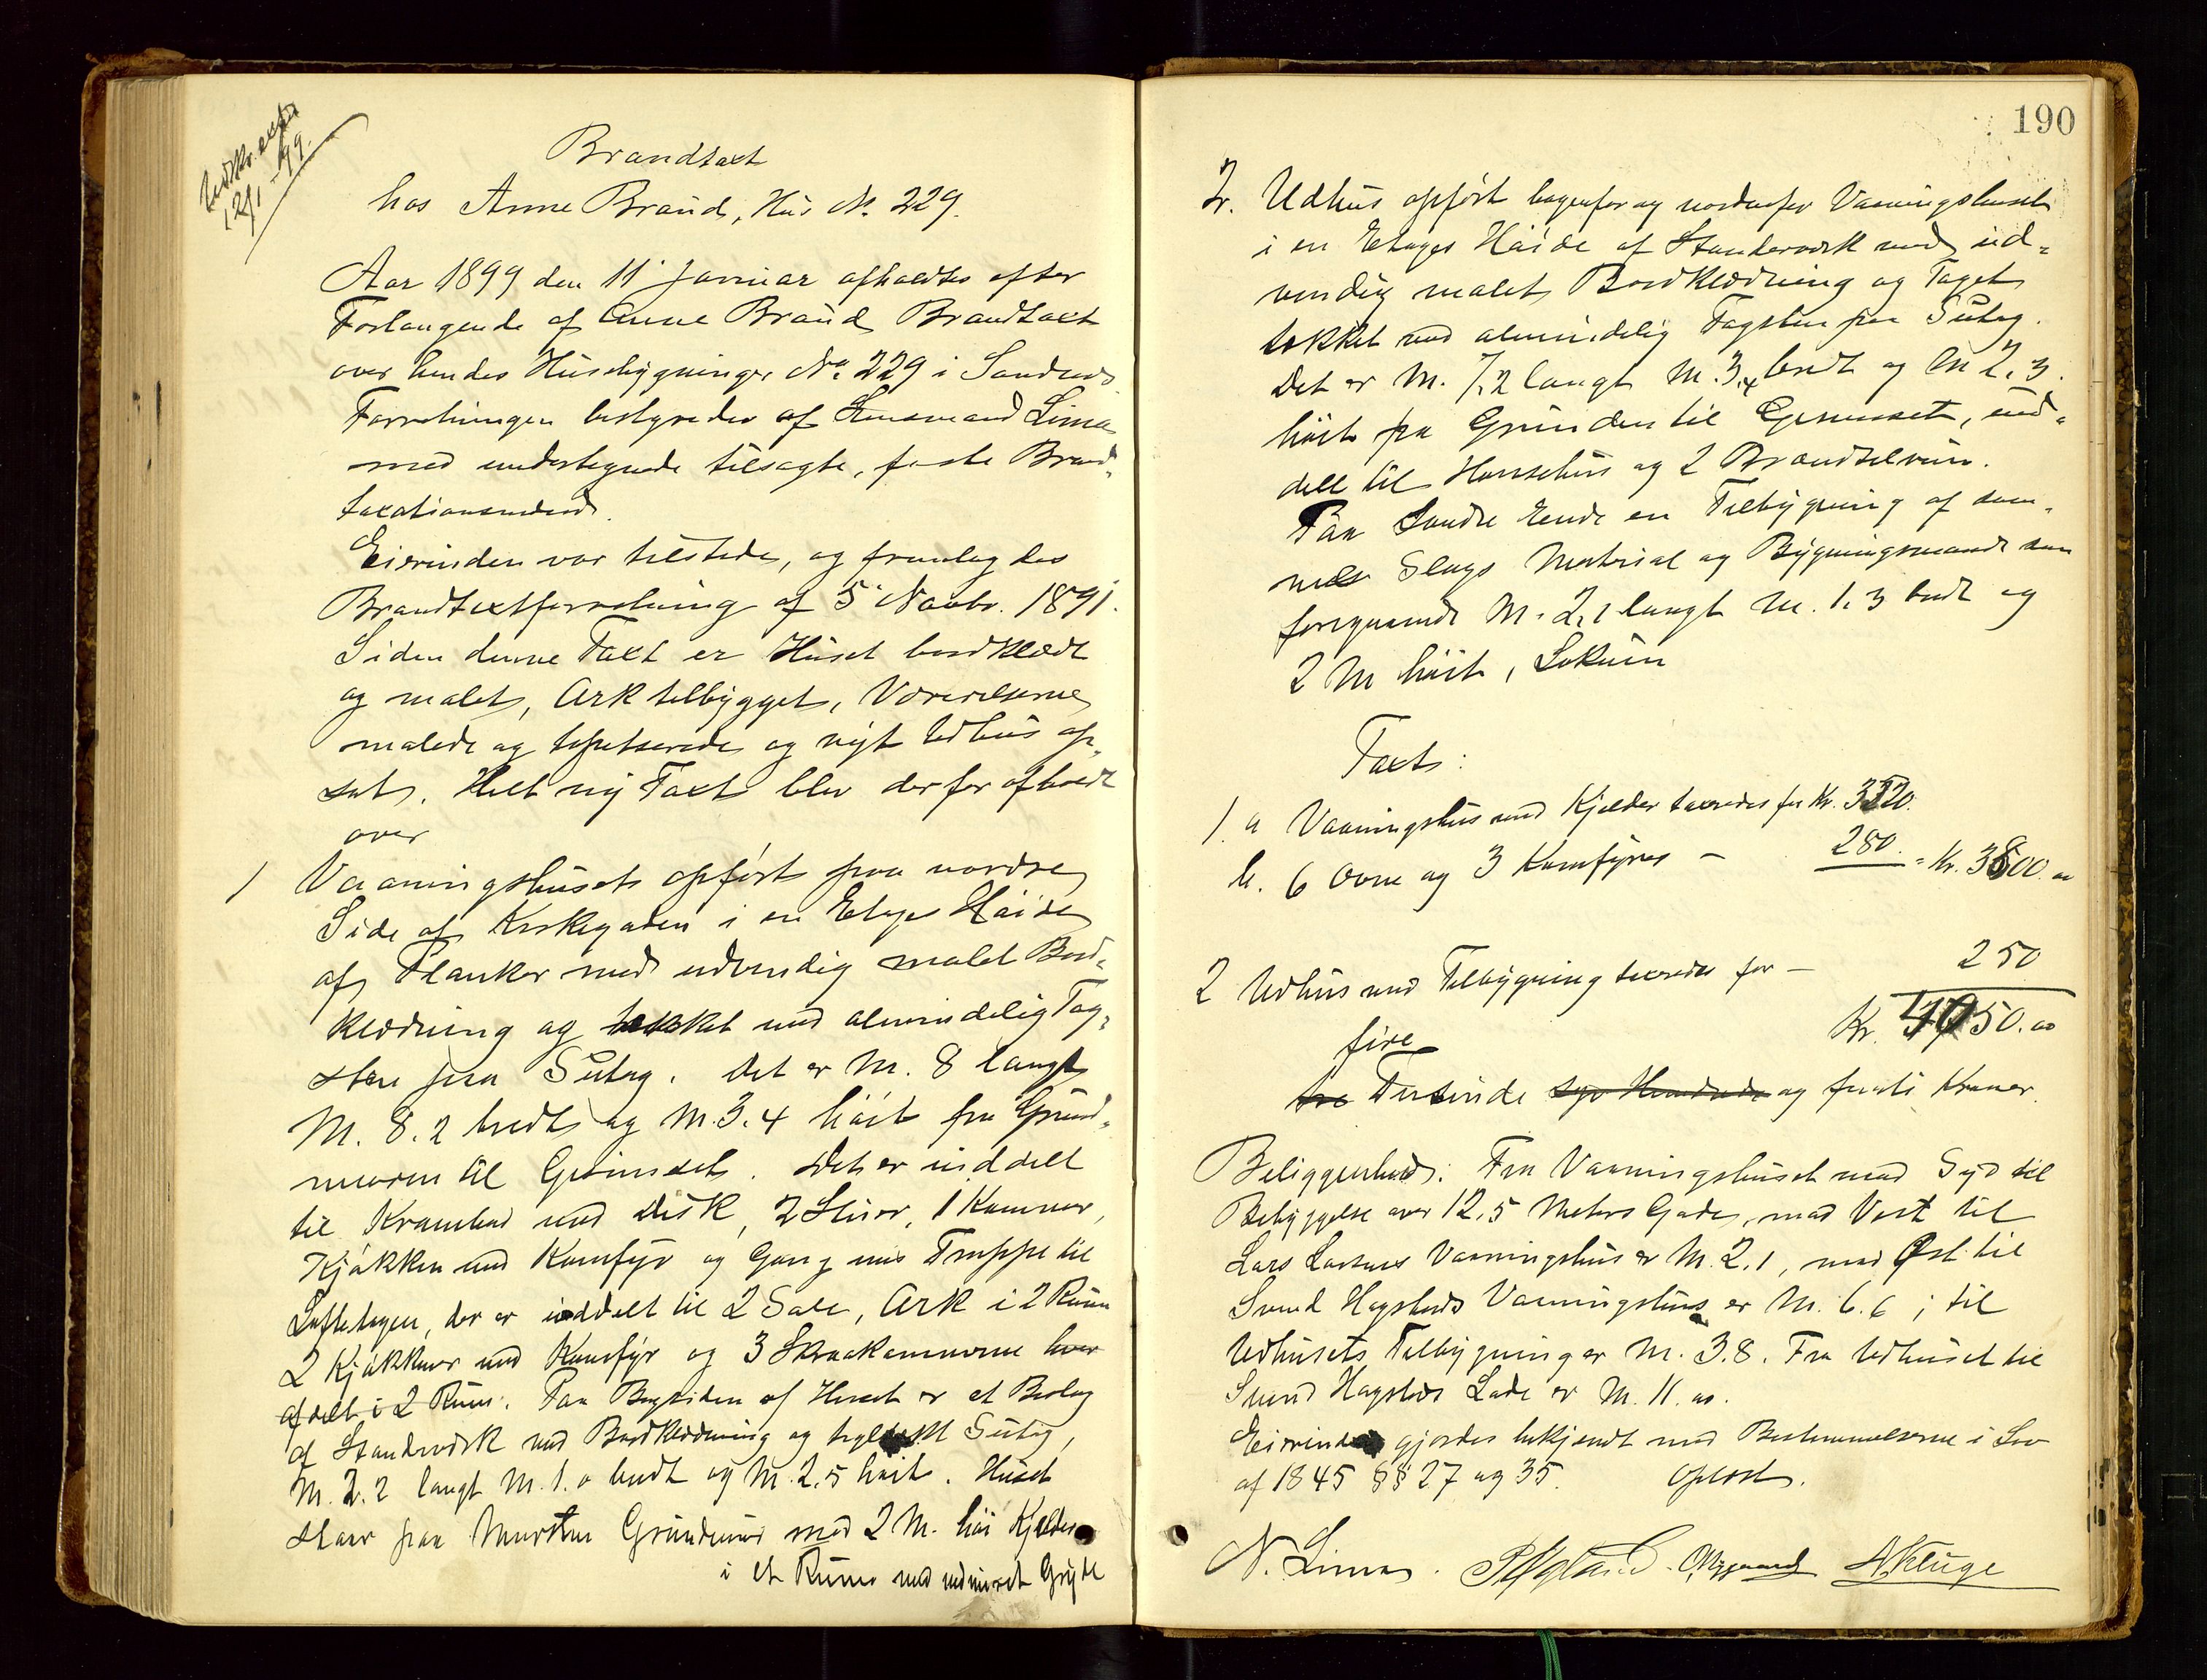 Udskr. exp.
12/1 - 99.
Brandtaxt
hos Anne Braud, Hus No. 229.
Aar 1899 den 11' Januar afholdtes efter
Forlangende af Anne Braud Brandtaxt
over hendes Husebygninger No. 229 i Sandnes
Forretningen bestyredes af Lensmand Lima
med undertegnede tilsagte, faste Brand-
taxationsmænd.
Eierinden var tilstede, og fremlagdes
Brandtaxtforretning af 5' Novbr. 1891.
Siden denne Taxt er Huset bordklædt
og malet, Ark tilbygget, Værelserne
malede og tapetserede og nyt Udhus op-
sat. Helt ny Taxt blev derfor afholdt
over
1 Vaaningshuset opført paa nordre
Side af Kirkegaden i en Etages Høide
af Planker med udvendig malet Bord-
klædning og tækket med almindelig Tag-
sten paa Sutag. Det er M. 8 langt
M. 8.2 bredt og M. 3.4 høit fra Grund-
muren til Gesimset. Det er inddelt
til Krambod med Disk, 2 Stuer, 1 Kammer,
Kjøkken med Komfyr og Gang med Trappe til
Loftetagen, der er inddelt til 2 Sale, Ark i 2 Rum
2 Kjøkkener med Komfyr og 3 Skraakammerne hver
afdelt i 2 Rum. Paa Bagsiden af Huset er et Bislag
af Standerværk med Bordklædning og Sutag,
M. 2.2 langt M. 1.0 bredt og M. 2.5 høit. Huset
staar paa Mursten Grundmur med 2 M. høi Kjelder
i et Rum med indmuret Gryde
190
2. Udhus opført bagenfor og nordenfor Vaaningshuset
i en Etages Høide af Standerværk med ud-
vendig malet Bordklædning og Taget
tækket med almindelig Tagsten paa Sutag.
Det er M. 7.2 langt M. 3.4 bredt og M 2.3.
høit fra Grunden til Gesimset, ind-
delt til Hønsehus og 2 Brændselrum.
Paa Søndre Ende en Tilbygning af sam-
me Slags Material og Bygningsmaade som
foregaaende M. 2.1 langt M. 1.3 bredt og
2 M høit, Lokum
Taxt:
1. a Vaaningshus med Kjelder taxeredes for Kr. 3520.
b. 6 Ovne og 3 Komfyrer - 280. = Kr. 3800.00
2 Udhus med Tilbygning taxeredes for - 250
Kr. 4050.00
fire
tre Tusinde syv Hundrede og femti Kroner.
Beliggenhed: Fra Vaaningshuset mod Syd til
Bebyggelse over 12,5 Meters Gade, mod Vest til
Lars Larsens Vaaningshus er M. 2.1, mod Øst til
Svend Hagsteds Vaaningshus er M. 6.6; til
Udhusets Tilbygning er M. 3.8. Fra Udhuset til
Svend Hagsteds Lade er M. 11.00.
Eierinden gjordes bekjendt med Bestemmelserne i Lov
af 1845 §§ 27 og 35. Oplæst.
N. Lima. A Kluge